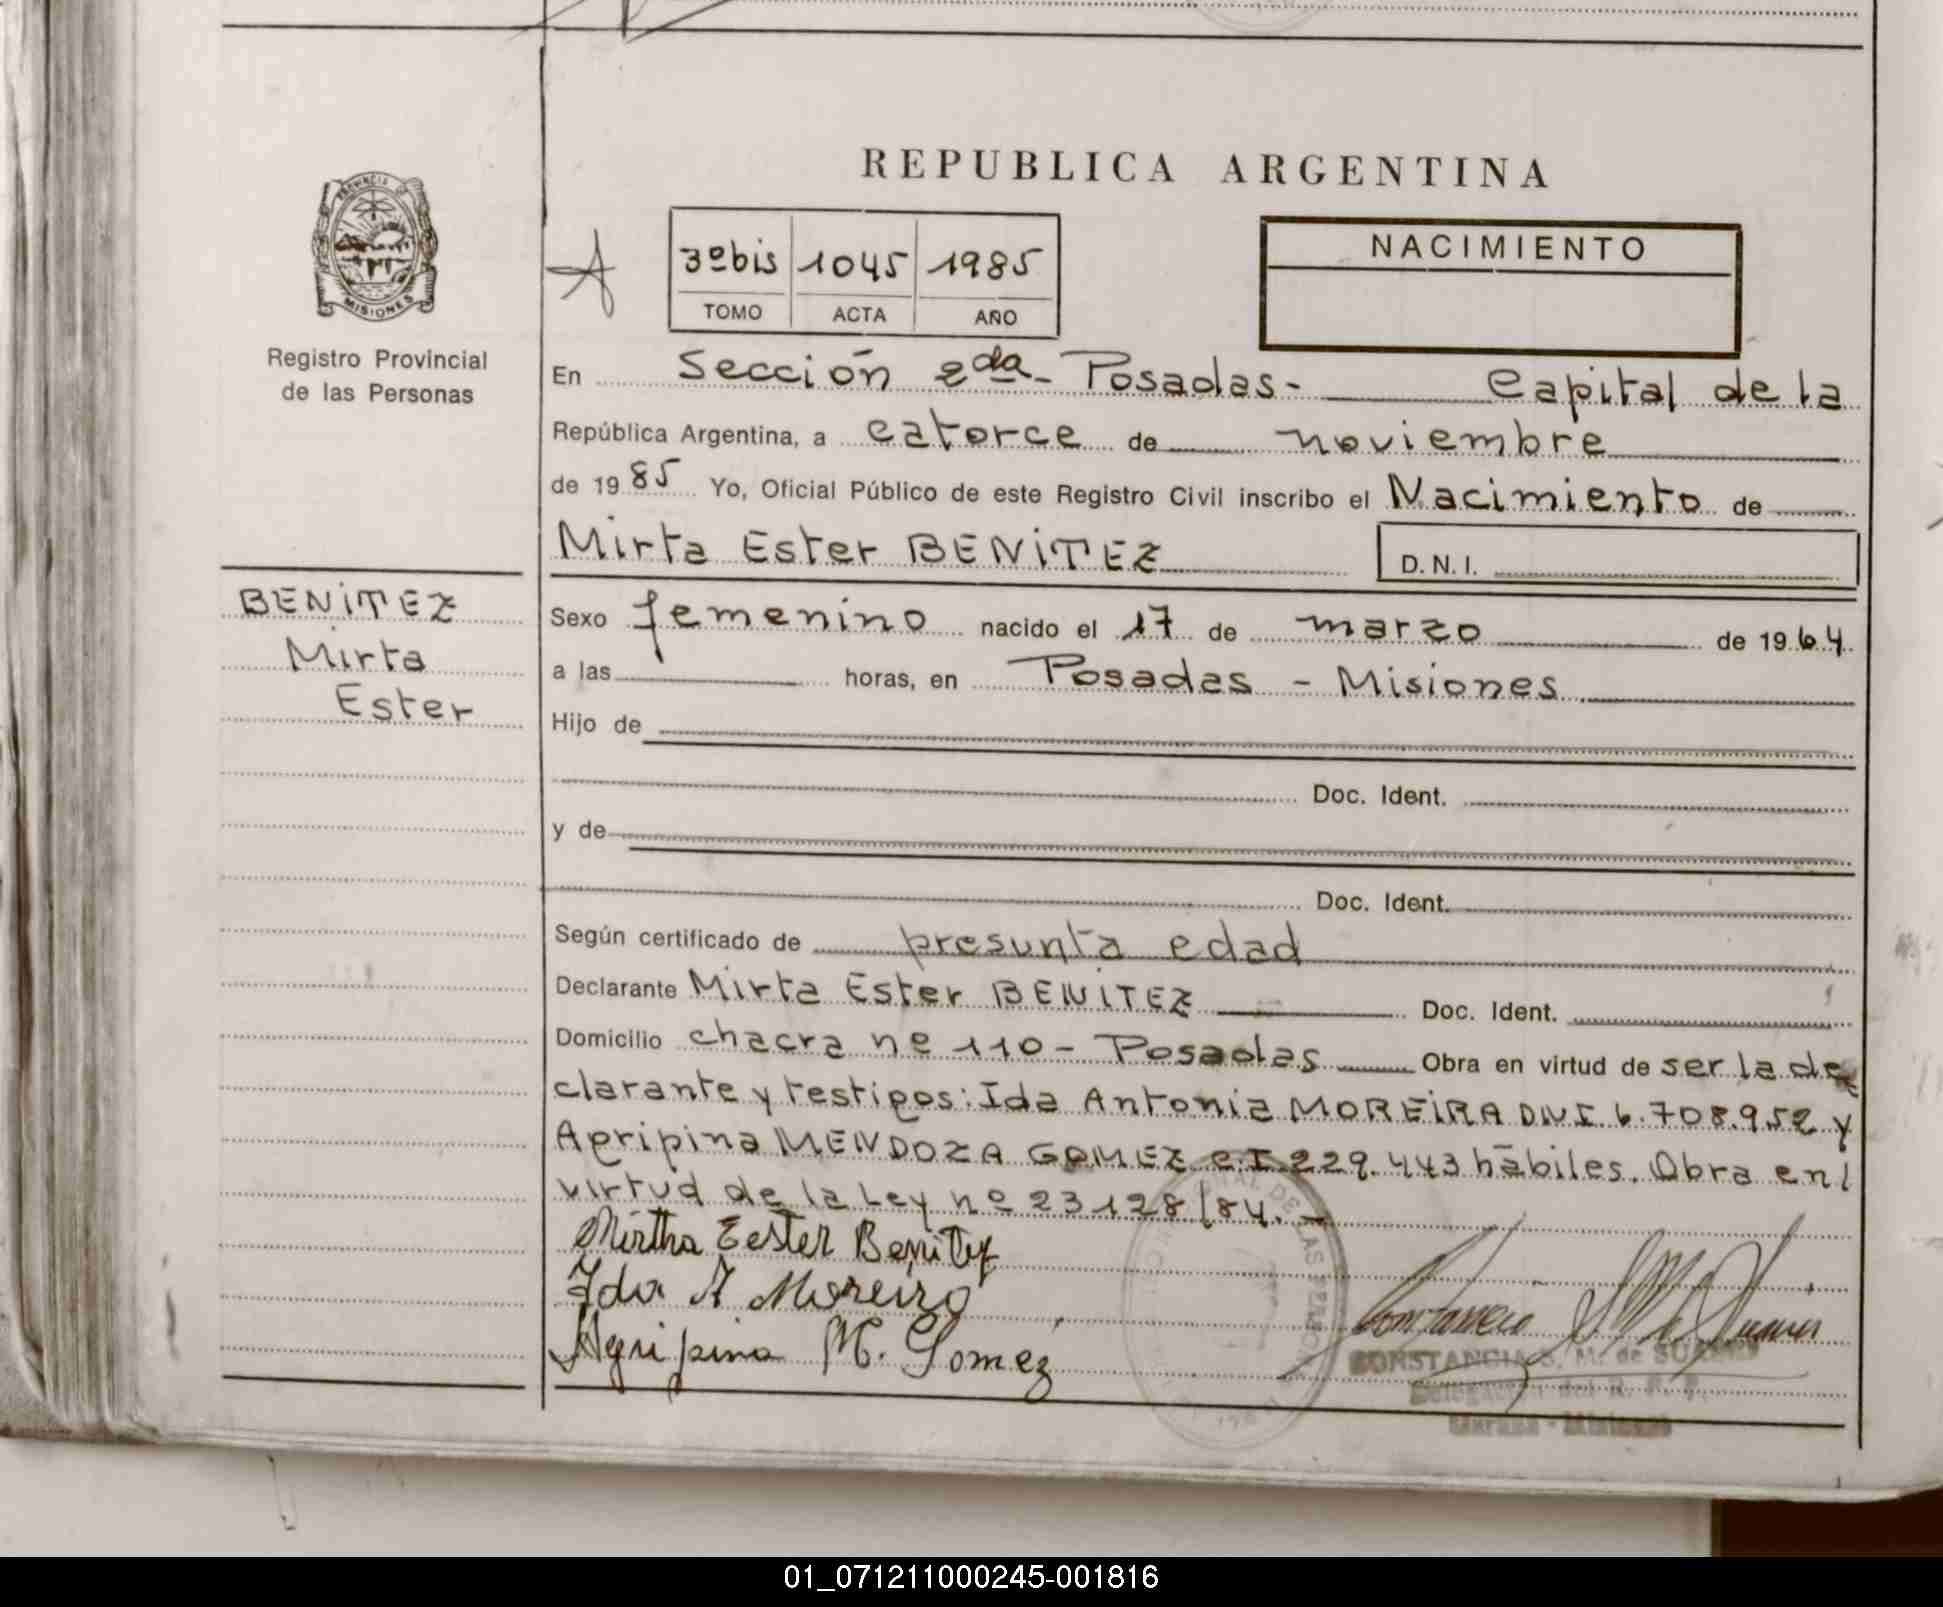 REPUBLICA ARGENTINA
PROVINCIA DE
MISIONES
Registro Provincial
de las Personas
3º bis 1045 1985
TOMO ACTA AÑO
NACIMIENTO
En Sección 2da - Posadas - Capital de la
República Argentina, a catorce de noviembre
de 1985 Yo, Oficial Público de este Registro Civil inscribo el Nacimiento de
Mirta Ester BENITEZ D.N.I.
BENITEZ
Mirta
Ester
Sexo femenino nacido el 17 de marzo de 1964
a las horas, en Posadas - Misiones
Hijo de
Doc. Ident.
y de
Doc. Ident.
Según certificado de presunta edad
Declarante Mirta Ester BENITEZ Doc. Ident.
Domicilio chacra nº 110 - Posadas Obra en virtud de ser la de
clarante y testigos: Ida Antonia MOREIRA DNI 6.708.952 y
Agripina MENDOZA GOMEZ CI 229.443 hábiles. Obra en
virtud de la Ley nº 23128/84. -
Mirtha Eester Benitez
Ida A Moreira
Agripina M. Gomez
CONSTANCIA S. M. de SUAREZ
01_071211000245-001816